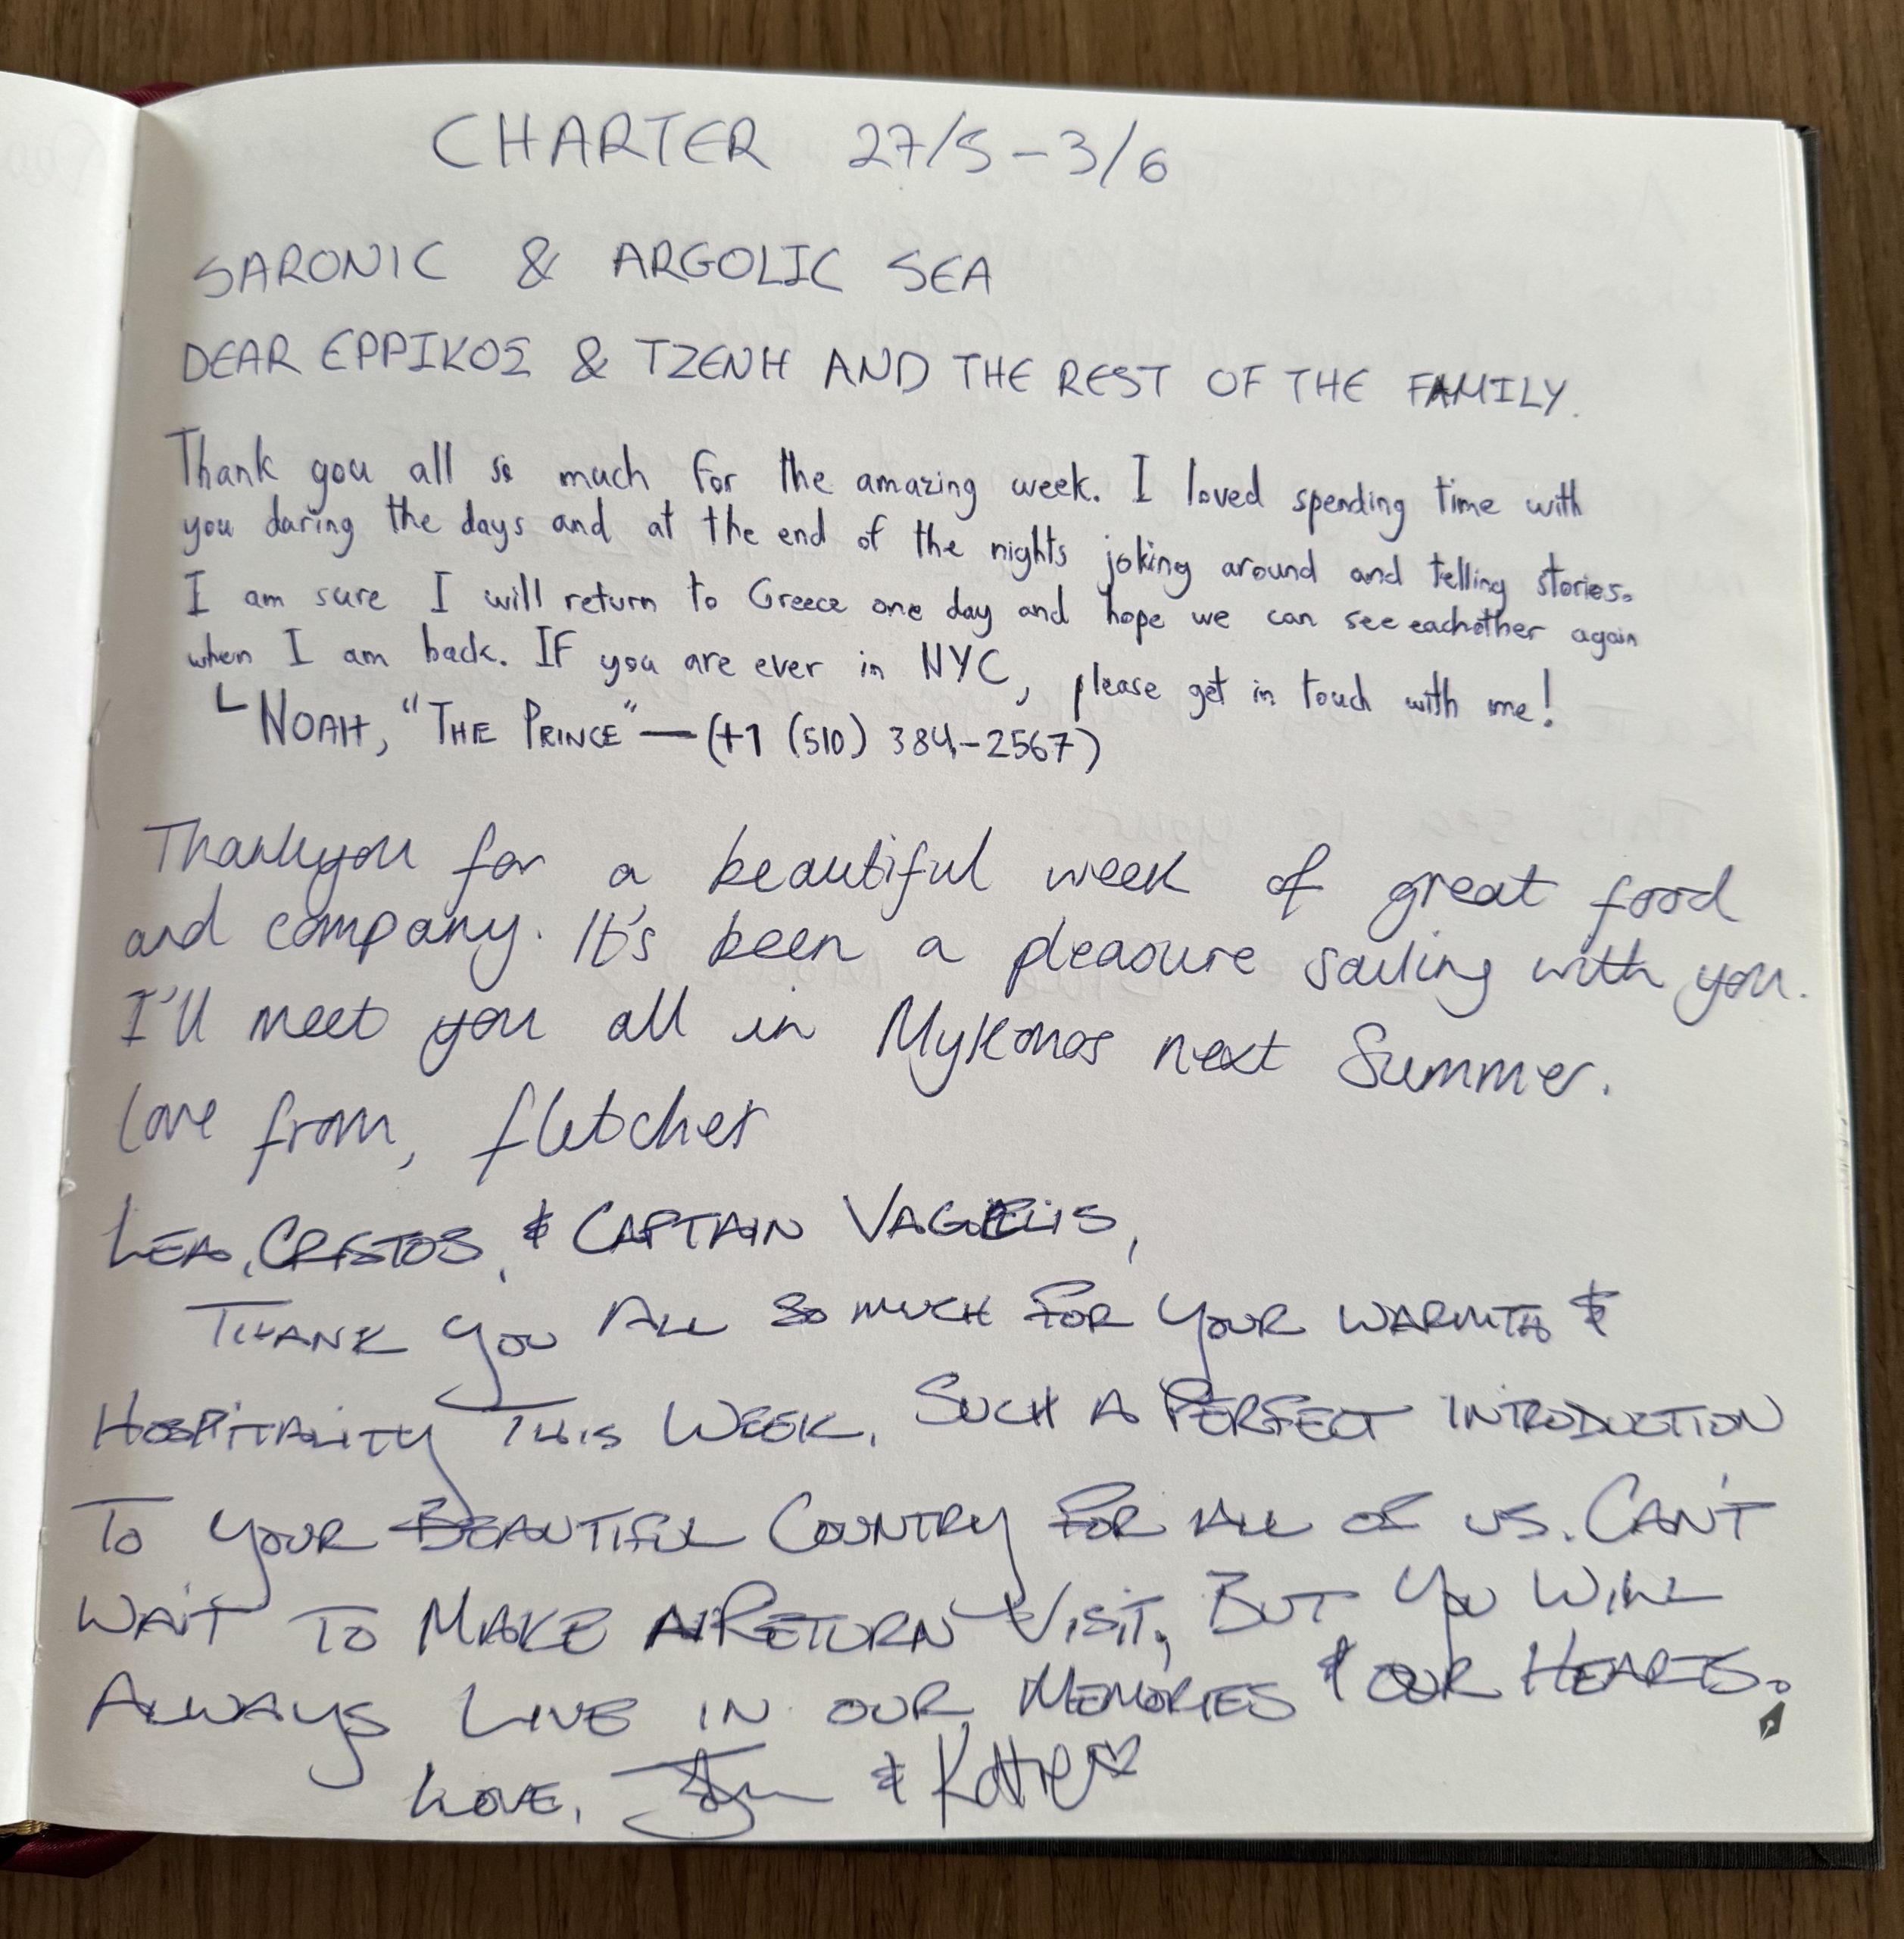 CHARTER 27/5 - 3/6
SARONIC & ARGOLIC SEA
DEAR ΕΡΡΙΚΟΣ & ΤΖΕΝΗ AND THE REST OF THE FAMILY.
Thank you all so much for the amazing week. I loved spending time with
you during the days and at the end of the nights joking around and telling stories.
I am sure I will return to Greece one day and hope we can see eachother again
when I am back. If you are ever in NYC, please get in touch with me!
NOAH, "THE PRINCE" — (+1 (510) 384-2567)
Thankyou for a beautiful week of great food
and company. It's been a pleasure sailing with you.
I'll meet you all in Mykonos next Summer.
love from, fletcher
LEA, CRISTOS, & CAPTAIN VAGELIS,
THANK YOU ALL SO MUCH FOR YOUR WARMTH &
HOSPITALITY THIS WEEK. SUCH A PERFECT INTRODUCTION
TO YOUR BEAUTIFUL COUNTRY FOR ALL OF US. CAN'T
WAIT TO MAKE A RETURN VISIT, BUT YOU WILL
ALWAYS LIVE IN OUR MEMORIES & OUR HEARTS.
LOVE, & Katie